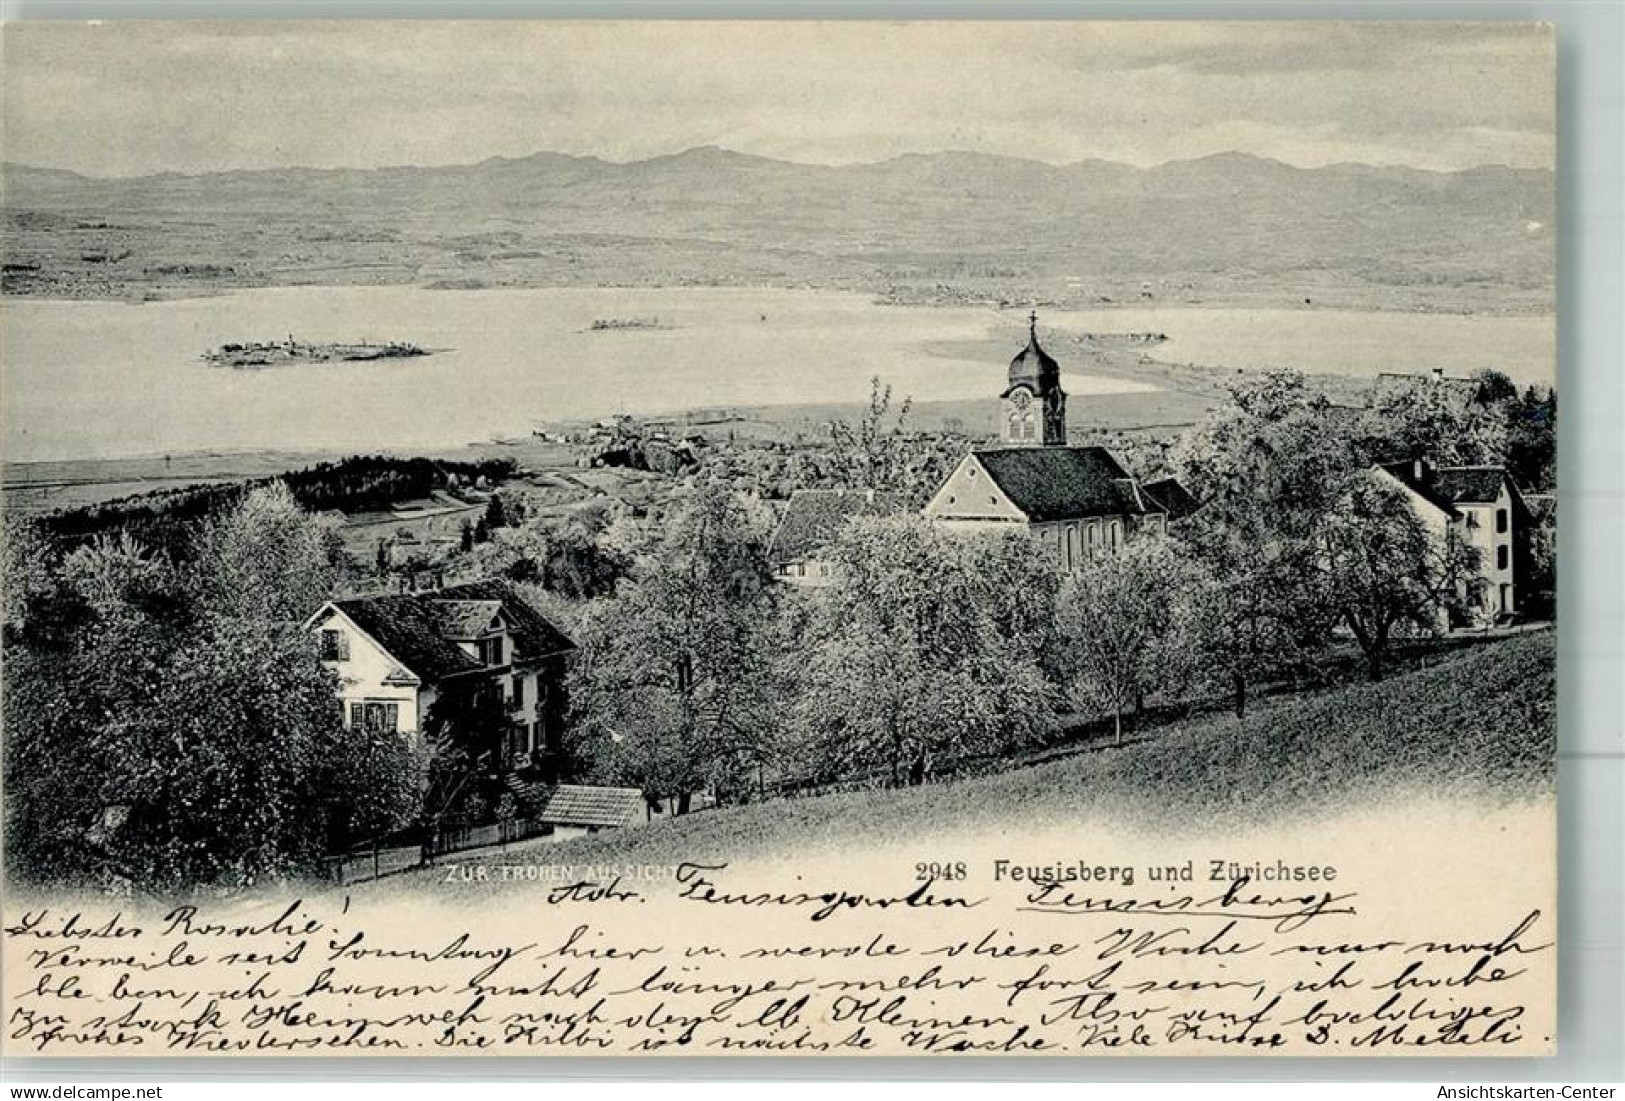 ZUR FROHEN AUSSICHT
2948 Feusisberg und Zürichsee
Adr. Feusisgarten Feusisberg.
Liebster Rosalie!
Verweile seit Sonntag hier u. werde diese Woche nur noch
bleiben, ich kann nicht länger mehr fort sein, ich habe
zu stark Heimweh nach dem lb. Kleinen Also auf baldiges
frohes Wiedersehen. Die Kilbi ist nächste Woche. Viele Küsse D.
delcampe.net
Ansichtskarten-Center